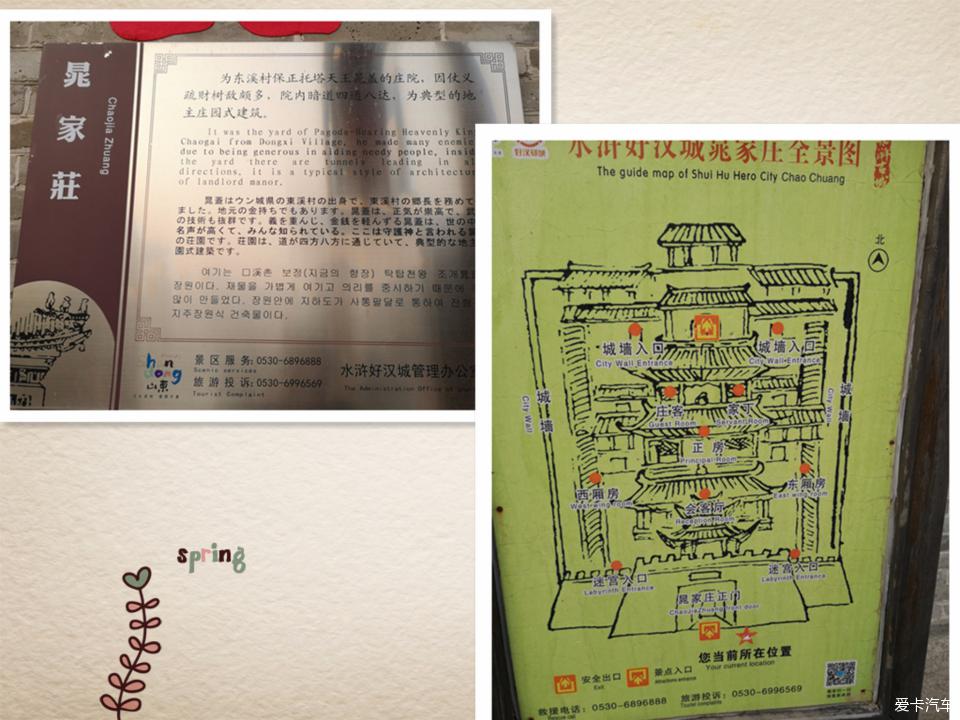 晁家莊
Chaojia Zhuang
为东溪村保正托塔天王晁盖的庄院，因仗义
疏财树敌颇多，院内暗道四通八达，为典型的地
主庄园式建筑。
It was the yard of Pagoda-Bearing Heavenly Kin
Chaogai from Dongxi Village, he made many enemie
due to being generous in aiding needy people, insid
the yard there are tunnels leading in al
directions, it is a typical style of architectur
of landlord manor.
晁蓋はウン城県の東溪村の出身で、東溪村の郷長を務めて
ました。地元の金持ちでもあります。晁蓋は、正気が崇高で、武
の技術も抜群です。義を重んじ、金銭を軽んずる晁蓋は、世の中
名声が高くて、みんな知られている。ここは守護神と言われる晁
の荘園です。荘園は、道が四方八方に通じていて、典型的な地主
園式建築です。
여기는 口溪촌 보정(지금의 향장) 탁탑천왕 조개
장원이다. 재물을 가볍게 여기고 의리를 중시하기 때문에
많이 만들었다. 장원안에 지하도가 사통팔달로 통하여 전형
지주장원식 건축물이다.
山東
景区服务:0530-6896888
Scenic services
旅游投诉:0530-6996569
Tourist Complaint
水浒好汉城管理办公
The Administration Office of
水浒好汉城晁家庄全景图
The guide map of Shui Hu Hero City Chao Chuang
北
城墙入口
City Wall Entrance
城墙入口
City Wall Entrance
城墙
City Wall
城墙
City Wall
庄客
Guest Room
家丁
Servant Room
正房
Principal Room
西厢房
West wing room
东厢房
East wing room
会客厅
Reception Room
迷宫入口
Labyrinth Entrance
迷宫入口
Labyrinth Entrance
晁家庄正门
ChaoJiaZhuang front door
您当前所在位置
Your current location
安全出口
Exit
景点入口
Attractions entrance
救援电话：0530-6896888
Rescue call
旅游投诉：0530-6996569
Tourist complaints
spring
爱卡汽车